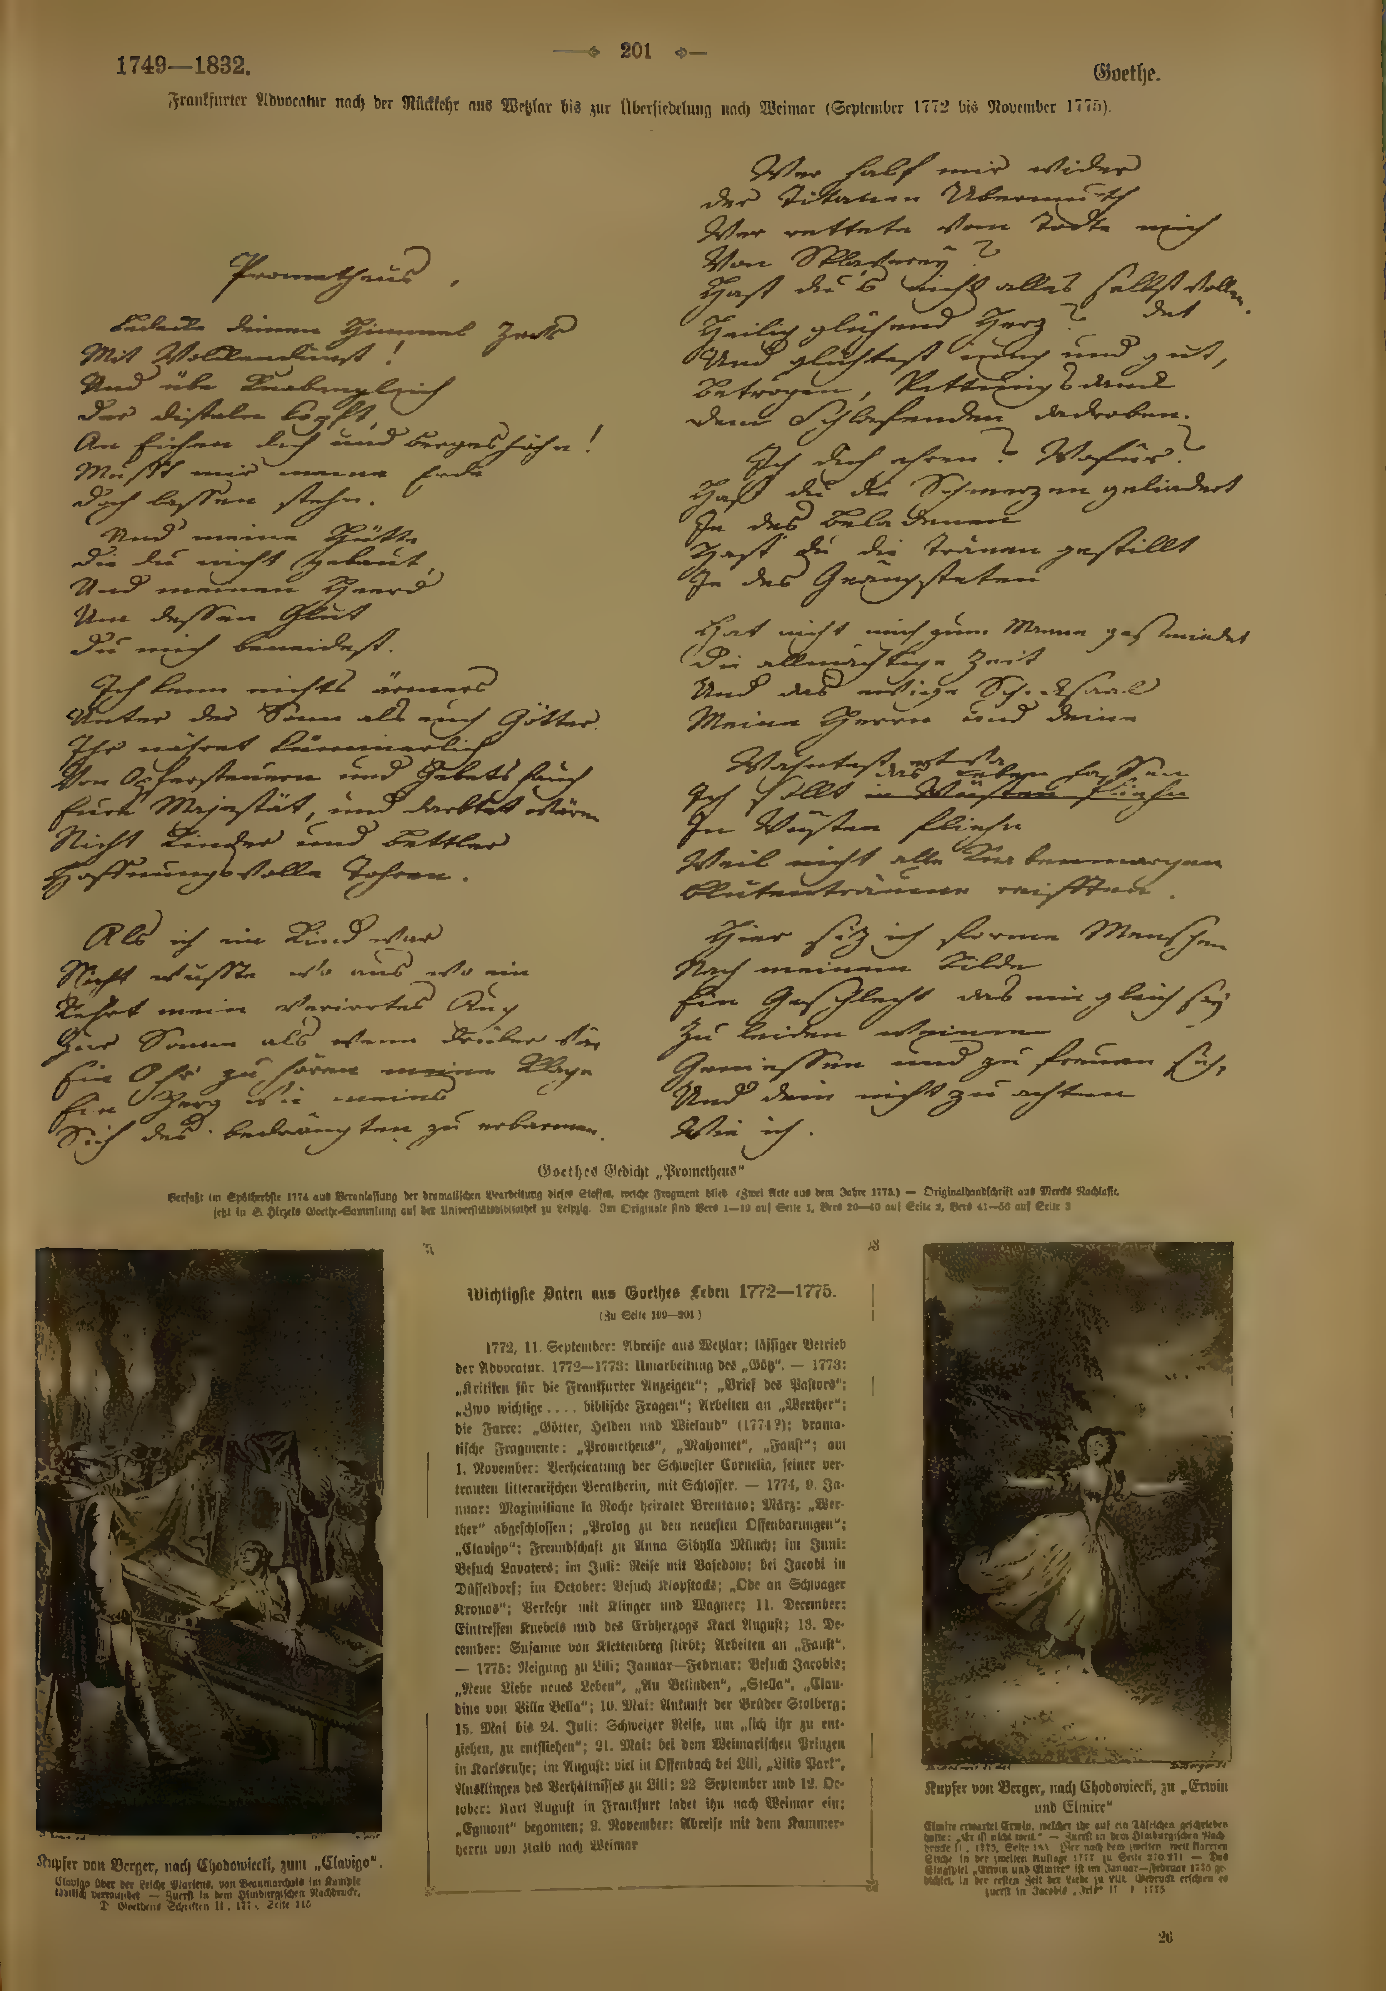 201
1749—1832.
Goethe.
Frankfurter Advocatur nach der Rückkehr aus Wetzlar bis zur Übersiedelung nach Weimar (September 1772 bis November 1775).
Prometheus.
Bedecke deinen Himmel Zeus
Mit Wolkendunst!
Und übe Knabengleich
Der disteln köpft,
An Eichen dich und Bergeshöhn!
Musst mir meine Erde
Doch lassen stehn.
Und meine Hütte
Die du nicht gebaut,
Und meinen Heerd
Um dessen Glut
Du mich beneidest.
Ich kenn nichts ärmers
Unter der Sonn als euch Götter.
Ihr nähret kümmerlich
Von Opfersteuern und Gebetshauch
Eure Majestät, und darbtet wären
Nicht Kinder und Bettler
Hoffnungsvolle Tohren.
Als ich ein Kind war
Nicht wusste wo aus wo ein
Kehrt mein verirrtes Aug
Zur Sonne als wenn drüber wär
Ein Ohr zu hören meine Klage
Ein Herz wie meins
Sich des bedrängten zu erbarmen.
Wer half mir wider
der Titanen Übermuth
Wer rettete vom Todte mich
Von Sklaverey?
Hast du's nicht alles selbst vollen
det
Heilig glühend Herz?
Und glühtest jung und gut,
Betrogen, Rettungsdank
Dem Schlafenden dadroben.
Ich dich ehren? Wofür?
Hast du die Schmerzen gelindert
Je des Beladenen
Hast du die Tränen gestillt
Je des Geängsteten
Hat nicht mich zum Manne geschmiedet
Die allmächtige Zeit
Und das ewige Schicksaal
Meine Herrn und deine
Wähntest etwa
das Leben hassen
Ich sollt in Wüsten fliehn
In Wüsten fliehn
Weil nicht alle Knabenmorgen
Blütenträume reifften.
Hier siz ich forme Menschen
Nach meinem Bilde
Ein Geschlecht das mir gleich sey
Zu leiden weinen
Geniessen und zu freuen sich,
Und dein nicht zu achten
Wie ich.
Goethes Gedicht „Prometheus“
Verfaßt im Spätherbste 1774 aus Veranlassung der dramatischen Bearbeitung dieses Stoffes, welche Fragment blieb (Zwei Acte aus dem Jahre 1773.) — Originalhandschrift aus Mercks Nachlasse,
jetzt in S. Hirzels Goethe-Sammlung auf der Universitätsbibliothek zu Leipzig. Im Originale sind Vers 1—19 auf Seite 1, Vers 20—40 auf Seite 2, Vers 41—56 auf Seite 3
Wichtigste Daten aus Goethes Leben 1772—1775.
(Zu Seite 199—201)
1772, 11. September: Abreise aus Wetzlar; lässiger Betrieb
der Advocatur. 1772—1773: Umarbeitung des „Götz“. — 1773:
„Kritiken für die Frankfurter Anzeigen“; „Brief des Pastors“;
„Zwo wichtige .... biblische Fragen“; Arbeiten an „Werther“;
die Farce: „Götter, Helden und Wieland“ (1774?); drama-
tische Fragmente: „Prometheus“, „Mahomet“, „Faust“; am
1. November: Verheiratung der Schwester Cornelia, seiner ver-
trauten litterarischen Beratherin, mit Schlosser. — 1774, 9. Ja-
nuar: Maximiliane la Roche heiratet Brentano; März: „Wer-
ther“ abgeschlossen; „Prolog zu den neuesten Offenbarungen“;
„Clavigo“; Freundschaft zu Anna Sibylla Münch; im Juni:
Besuch Lavaters; im Juli: Reise mit Basedow; bei Jacobi in
Düsseldorf; im October: Besuch Klopstocks; „Ode an Schwager
Kronos“; Verkehr mit Klinger und Wagner; 11. December:
Eintreffen Knebels und des Erbherzogs Karl August; 13. De-
cember: Susanne von Klettenberg stirbt; Arbeiten an „Faust“.
— 1775: Neigung zu Lili; Januar—Februar: Besuch Jacobis;
„Neue Liebe neues Leben“, „An Belinden“, „Stella“, „Clau-
dine von Villa Bella“; 10. Mai: Ankunft der Brüder Stolberg;
15. Mai bis 24. Juli: Schweizer Reise, um „sich ihr zu ent-
ziehen, zu entfliehen“; 21. Mai: bei dem Weimarischen Prinzen
in Karlsruhe; im August: viel in Offenbach bei Lili, „Lilis Park“,
Ausklingen des Verhältnisses zu Lili; 22 September und 12. Oc-
tober: Karl August in Frankfurt ladet ihn nach Weimar ein;
„Egmont“ begonnen; 2. November: Abreise mit dem Kammer-
herrn von Kalb nach Weimar
Kupfer von Berger, nach Chodowiecki, zum „Clavigo“.
Clavigo über der Leiche Mariens, von Beaumarchais im Kampfe
tödtlich verwundet — Zuerst in dem Himburgischen Nachdruck,
Goethens Schriften II
Kupfer von Berger, nach Chodowiecki, zu „Erwin
und Elmire“
Elmire erwartet Erwin, welcher ihr auf ein Täfelchen geschrieben
hatte: „Er ist nicht weit.“ — Zuerst in dem Himburgischen Nach-
drucke II, 1775, Seite
Stiche in der zweiten Auflage 1777 zu Seite — Das
Singspiel „Erwin und Elmire“ ist im Januar—Februar 1775 ge-
dichtet, in der ersten Zeit der Liebe zu Lili. Gedruckt erschien es
zuerst in Jacobis „Iris“ 1775
26